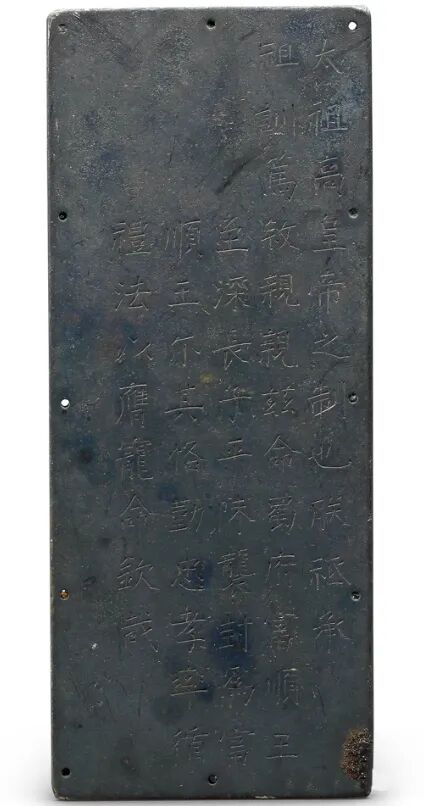 太祖高皇帝之制也朕祗承
祖訓篤敘親親兹命蜀府富順王
至深長子平襲封為富
順王尔其恪勤忠孝率循
禮法以膺寵命欽哉